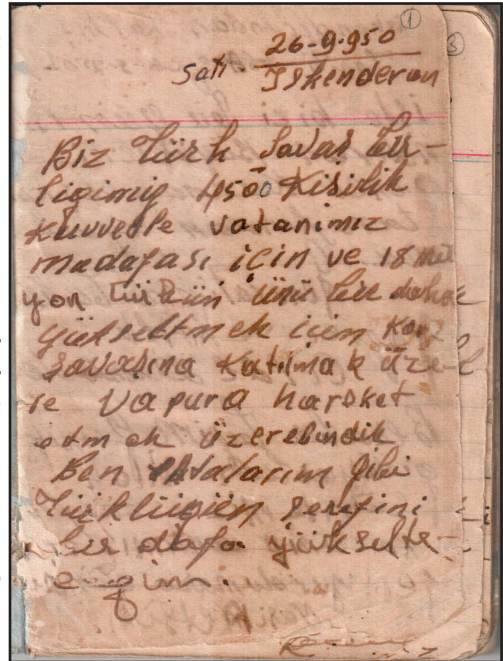 1
3
26-9-950
Salı İskenderun
Biz Türk Savaş bir-
ligimiz 4500 Kişilik
Kuvvetle vatanımız
madafası için ve 18 mil
yon türkün ünü bir daha
yükseltmek için Kore
savaşına Katılmak üze
re Vapura hareket
etmek üzere bindik
Ben Atalarım gibi
Türklügün şerefini
bir dafa yükselte-
cegim.